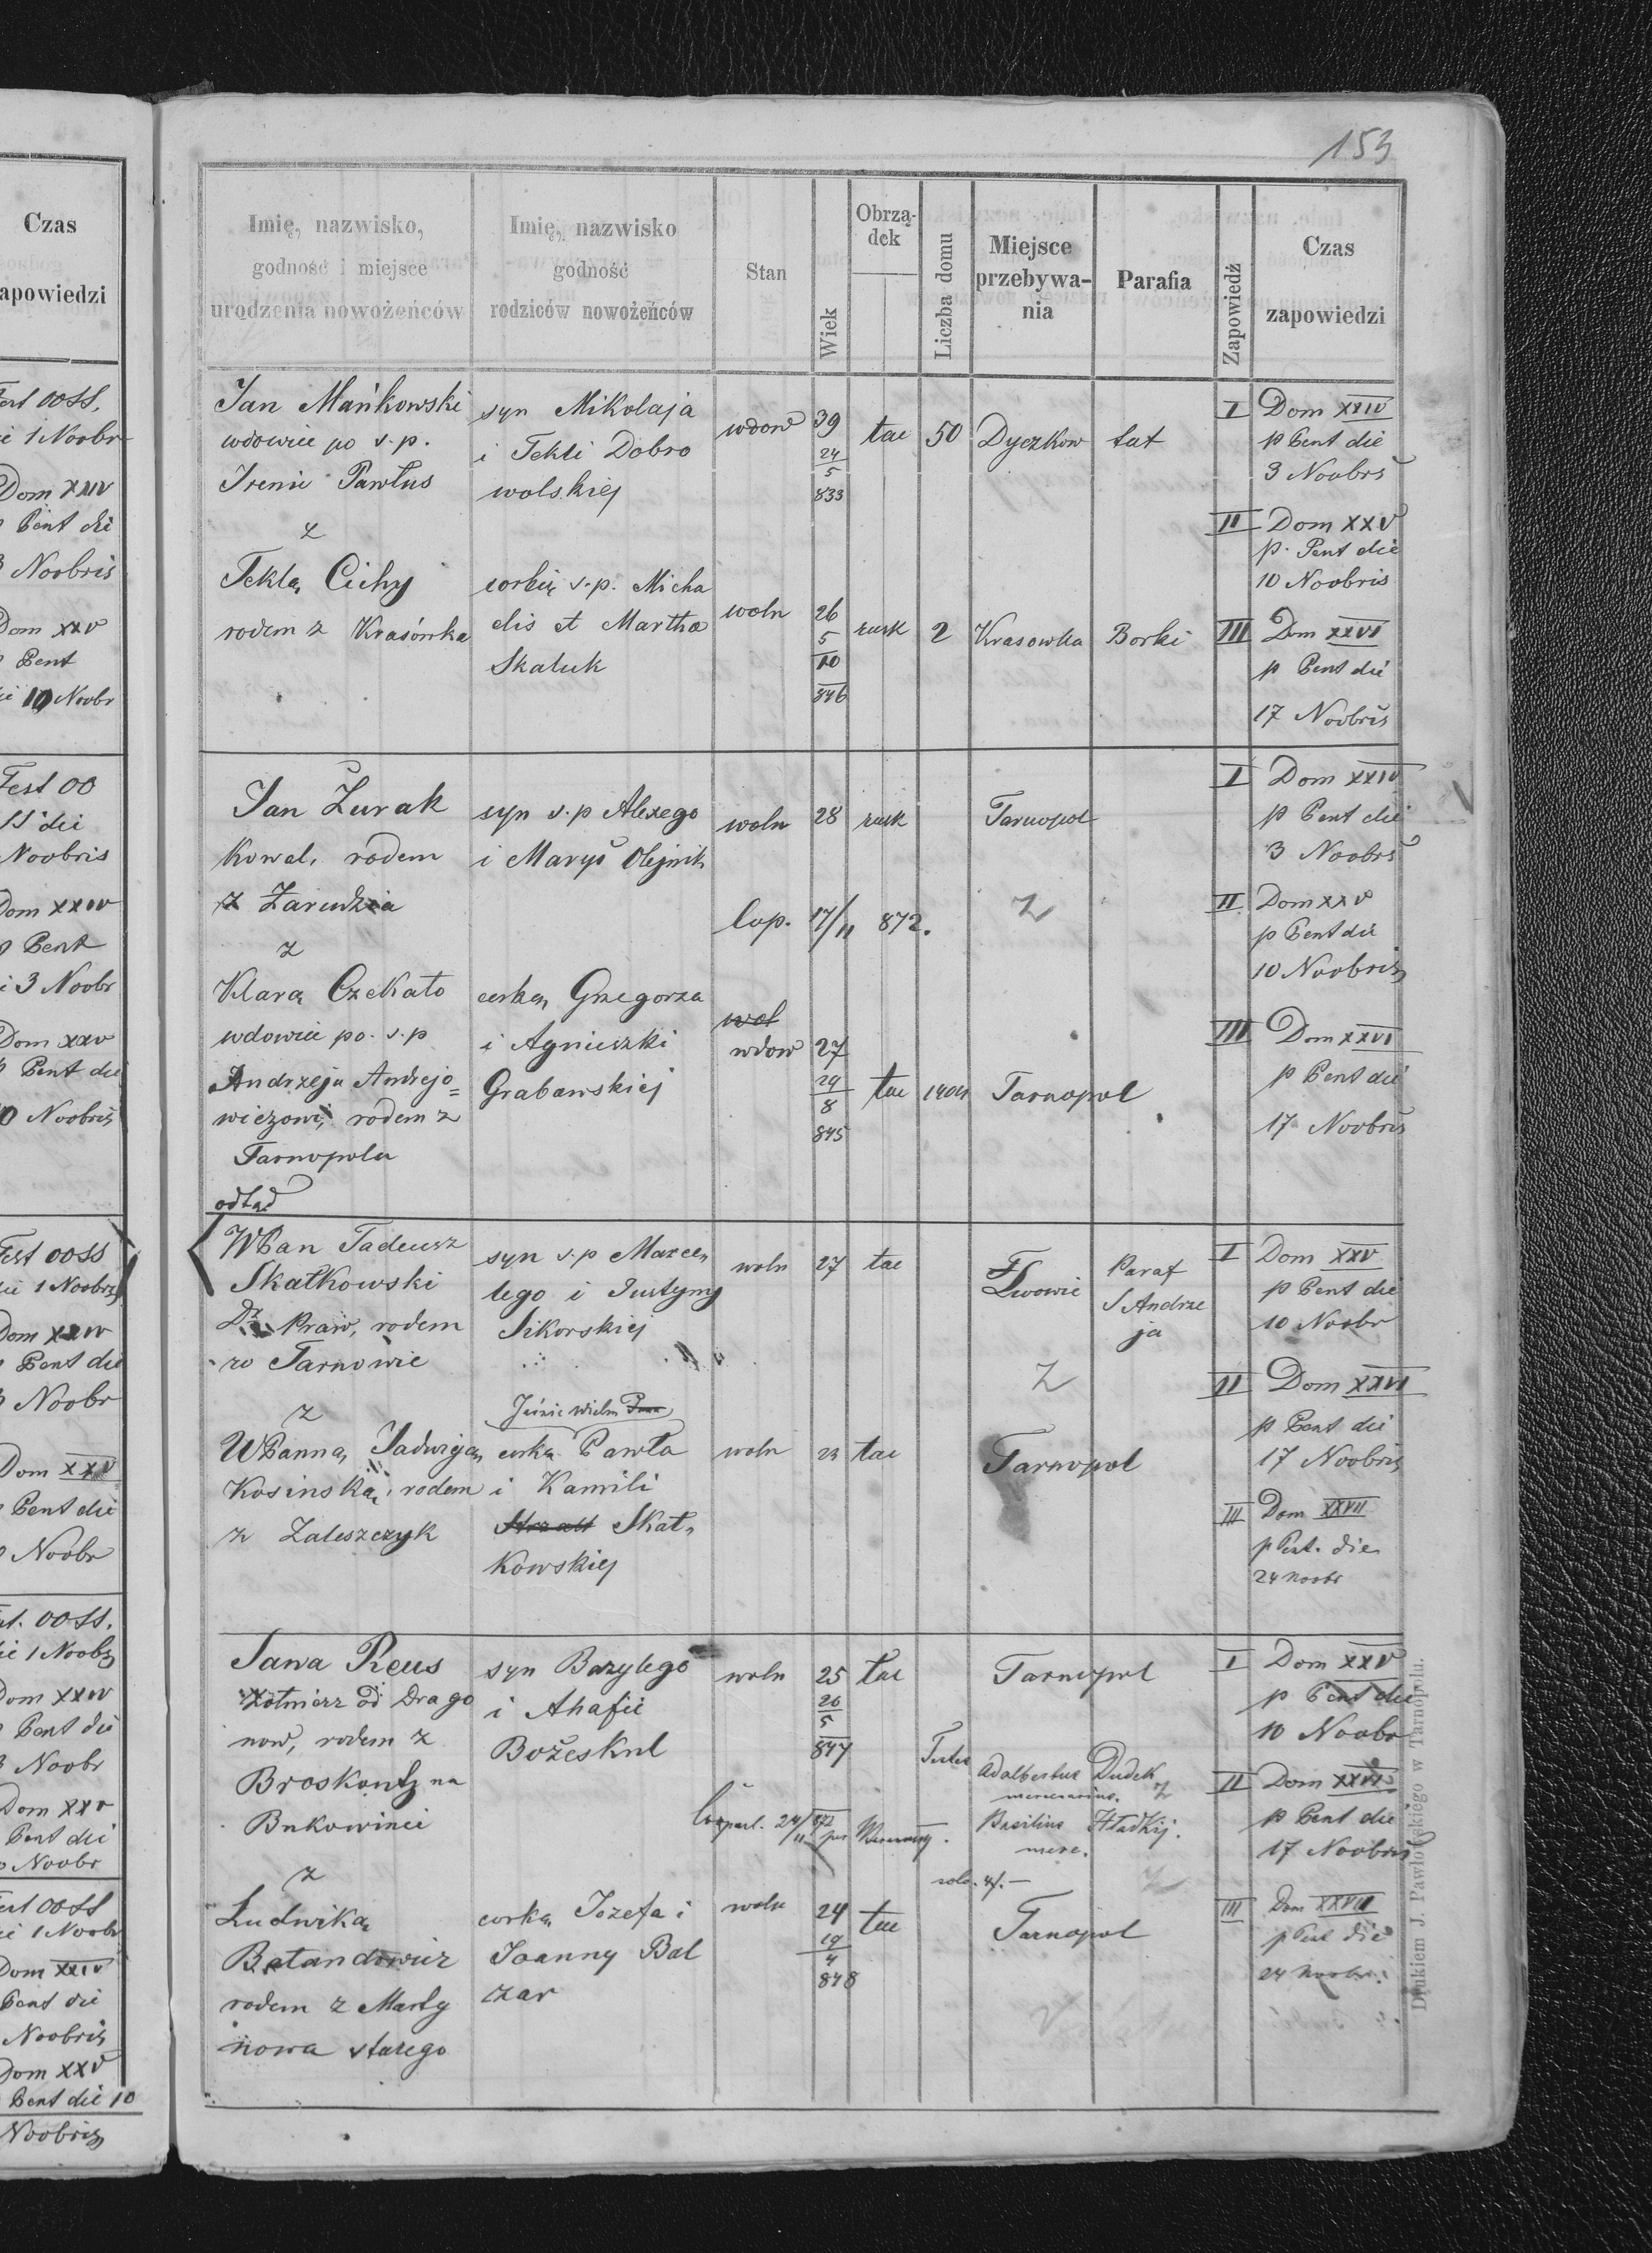 153
Czas
zapowiedzi
Fest OOSS.
die 1 Noobr
Dom XXIV
p Pent die
3 Noobris
Dom XXV
p Pent
die 10 Noobr
Fest OO
SS die
Noobris
Dom XXIV
p Pent
3 Noobr
Dom XXV
p Pent die
10 Noobris
Fest OOSS
die 1 Noobris
Dom XXIV
p Pent die
3 Noobr
Dom XXV
Pent die
10 Noobr
Fest. OOSS.
die 1 Noobr
Dom XXIV
p Pent die
3 Noobr
Dom XXV
Pent die
10 Noobr
Fest OOSS
die 1 Noobr
Dom XXIV
Pent die
Noobris
Dom XXV
Pent die 10
Noobris
Imię, nazwisko,
godność i miejsce
urodzenia nowożeńców
Imię, nazwisko
godność
rodziców nowożeńców
Stan
Wiek
Obrzą-
dek
Liczba domu
Miejsce
przebywa-
nia
Parafia
Zapowiedź
Czas
zapowiedzi
Jan Mańkowski
wdowiec po s.p.
Irenie Pawlus
z
Teklą Cichy
rodem z Krasówka
syn Mikolaja
i Tekli Dobro
wolskiej
corką s.p. Micha
elis et Martha
Skaluk
wdow 39
24
5
833
łac 50 Dyczkow łat
woln 26
5
10
846
rusk 2 Krasowka Borki
I Dom XXIV
p Pent die
3 Noobrs
II Dom XXV
p. Pent die
10 Noobris
III Dom XXVI
p Pent die
17 Noobris
Jan Żurak
Kowal, rodem
z Zarudzia
z
Klarą Czekało
wdowie po s.p
Andrzeju Andrejo=
wiczowi, rodem z
Tarnopola
syn s.p Alexego
i Maryi Olejnik
corką Grzegorza
i Agnieszki
Grabawskiej
woln 28 rusk Tarnopol
Cop. 17/11 872.
z
wol
wdow 27
29
8
845
łac 1404 Tarnopol
I Dom XXIV
p Pent die
3 Noobrs
II Dom XXV
p Pent die
10 Noobris
III Dom XXVI
p Pent die
17 Noobris
odtąd
WPan Tadeusz
Skałkowski
Dr Praw, rodem
w Tarnowie
z
WPanną Jadwigą
Kosinską, rodem
z Zaleszczyk
syn s.p Marce
lego i Justyny
Sikorskiej
Jaśnie Wielm Pana
corką Pawła
i Kamili
Skał
kowskiej
woln 27 łac Lwowie Paraf
S Andrze
ja
z
woln 23 łac Tarnopol
I Dom XXV
p Pent die
10 Noobr
II Dom XXVI
p Pent die
17 Noobris
III Dom XXVII
p Pent. die
24 Noobr
Sawa Reus
żołnierz od Drago
now, rodem z
Broskoutz na
Bukowinie
z
Ludwiką
Bałandowicz
rodem z Marty
nowa starego
syn Bazylego
i Ahafii
Bożeskul
corką Jozefa i
Joanny Bal
czar
woln 25 łac Tarnopol
26
5
847
Testes Adalbertus Dudek
mercenarius.
Basilius Hładkij.
merc.
24/11 872 per
z
woln 24 łac Tarnopol
19
4
848
I Dom XXV
p Pent die
10 Noobr
II Dom XXVI
p Pent die
17 Noobris
III Dom XXVII
p Pent die
24 Noobr.
Drukiem J. Pawłowskiego w Tarnopolu.